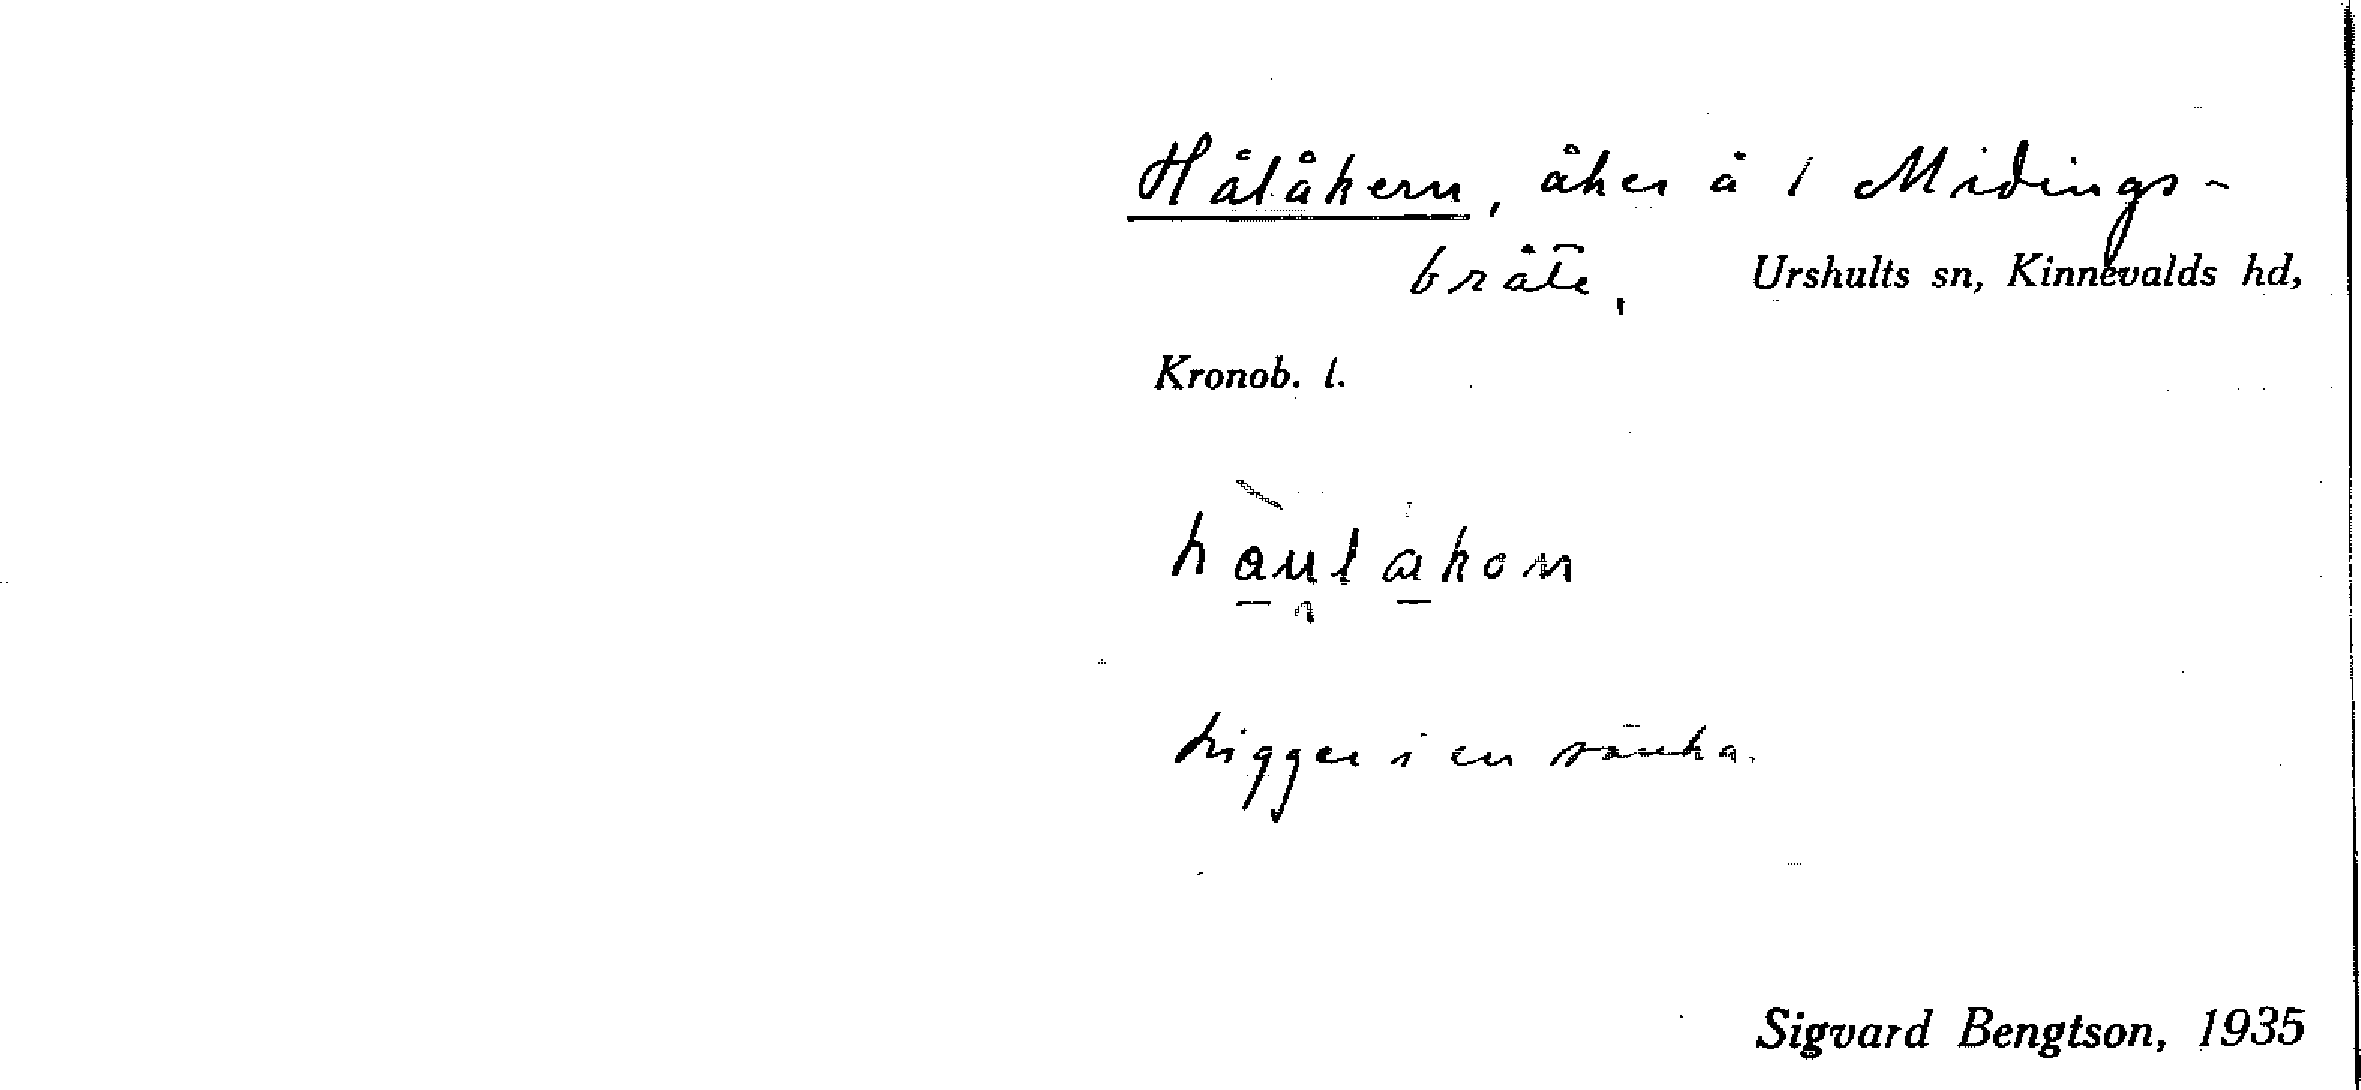 Hålåkern, åker å 1 Midings-
bråte, Urshults sn, Kinnevalds hd,
Kronob. l.
haulakon
Ligger i en sänka.
Sigvard Bengtson, 1935